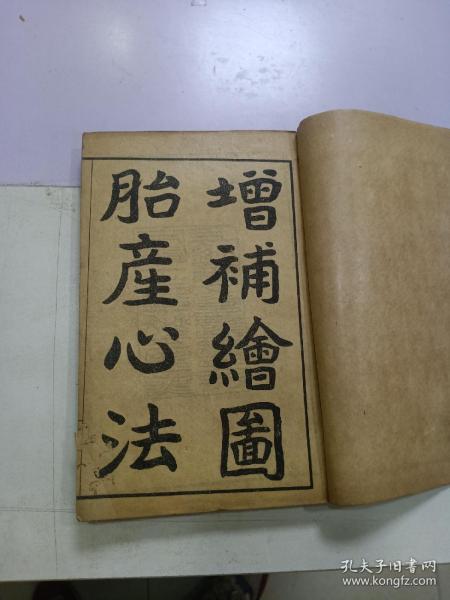 增補繪圖
胎產心法
孔夫子旧书网
www.kongfz.com